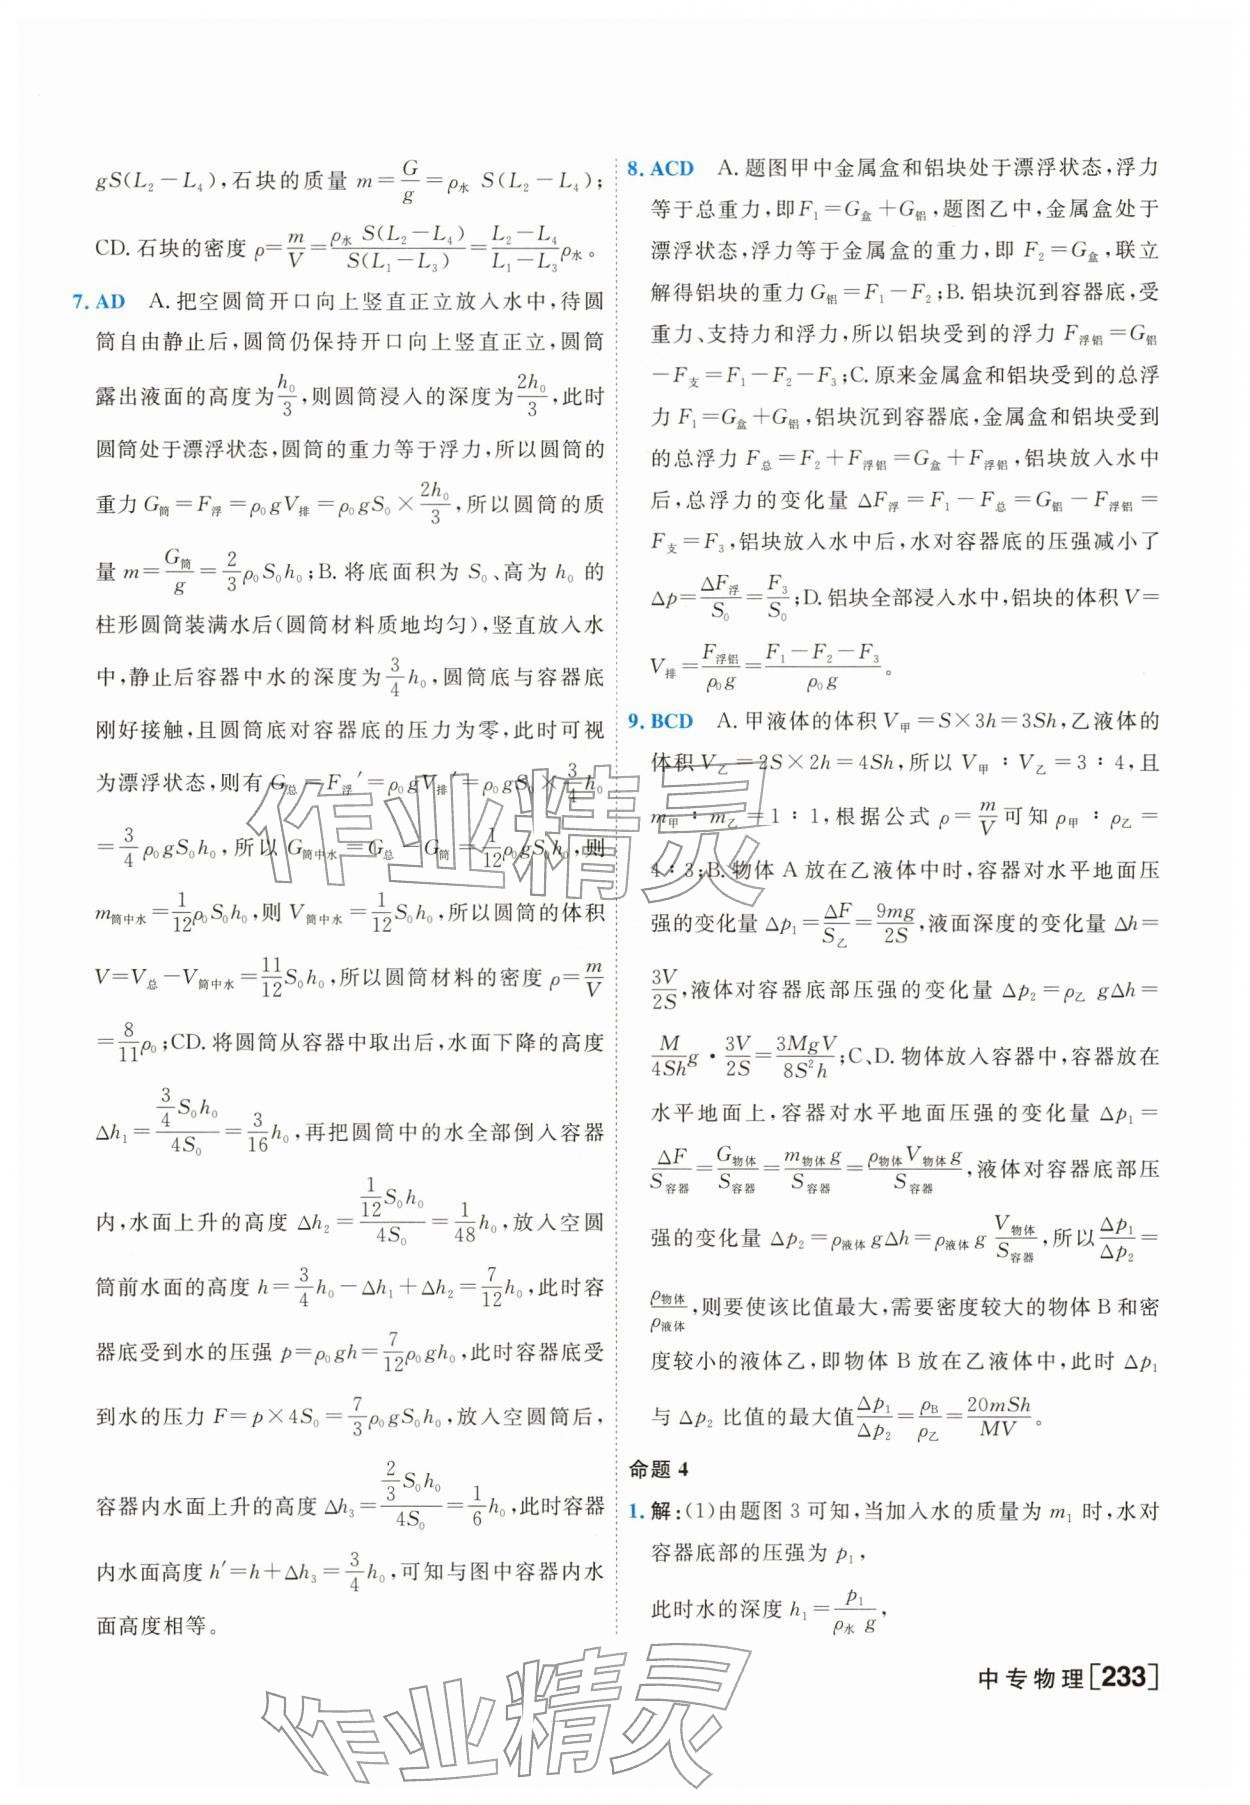 gS(L₂－L₄)，石块的质量 m＝G/g＝ρ水 S(L₂－L₄)；
CD. 石块的密度 ρ＝m/V＝ρ水 S(L₂－L₄)/S(L₁－L₃)＝(L₂－L₄)/(L₁－L₃)ρ水。
7. AD A. 把空圆筒开口向上竖直正立放入水中，待圆
筒自由静止后，圆筒仍保持开口向上竖直正立，圆筒
露出液面的高度为h₀/3，则圆筒浸入的深度为2h₀/3，此时
圆筒处于漂浮状态，圆筒的重力等于浮力，所以圆筒的
重力 G筒＝F浮＝ρ₀gV排＝ρ₀gS₀×2h₀/3，所以圆筒的质
量 m＝G筒/g＝2/3ρ₀S₀h₀；B. 将底面积为 S₀、高为 h₀ 的
柱形圆筒装满水后(圆筒材料质地均匀)，竖直放入水
中，静止后容器中水的深度为3/4h₀，圆筒底与容器底
刚好接触，且圆筒底对容器底的压力为零，此时可视
为漂浮状态，则有 G总＝F浮′＝ρ₀gV排′＝ρ₀gS₀×3/4h₀
＝3/4ρ₀gS₀h₀，所以 G筒中水＝G总－G筒＝1/12ρ₀gS₀h₀，则
m筒中水＝1/12ρ₀S₀h₀，则 V筒中水＝1/12S₀h₀，所以圆筒的体积
V＝V总－V筒中水＝11/12S₀h₀，所以圆筒材料的密度 ρ＝m/V
＝8/11ρ₀；CD. 将圆筒从容器中取出后，水面下降的高度
Δh₁＝(3/4S₀h₀)/4S₀＝3/16h₀，再把圆筒中的水全部倒入容器
内，水面上升的高度 Δh₂＝(1/12S₀h₀)/4S₀＝1/48h₀，放入空圆
筒前水面的高度 h＝3/4h₀－Δh₁＋Δh₂＝7/12h₀，此时容
器底受到水的压强 p＝ρ₀gh＝7/12ρ₀gh₀，此时容器底受
到水的压力 F＝p×4S₀＝7/3ρ₀gS₀h₀，放入空圆筒后，
容器内水面上升的高度 Δh₃＝(2/3S₀h₀)/4S₀＝1/6h₀，此时容器
内水面高度 h′＝h＋Δh₃＝3/4h₀，可知与图中容器内水
面高度相等。
8. ACD A. 题图甲中金属盒和铝块处于漂浮状态，浮力
等于总重力，即F₁＝G盒＋G铝，题图乙中，金属盒处于
漂浮状态，浮力等于金属盒的重力，即 F₂＝G盒，联立
解得铝块的重力 G铝＝F₁－F₂；B. 铝块沉到容器底，受
重力、支持力和浮力，所以铝块受到的浮力 F浮铝＝G铝
－F支＝F₁－F₂－F₃；C. 原来金属盒和铝块受到的总浮
力 F₁＝G盒＋G铝，铝块沉到容器底，金属盒和铝块受到
的总浮力 F总＝F₂＋F浮铝＝G盒＋F浮铝，铝块放入水中
后，总浮力的变化量 ΔF浮＝F₁－F总＝G铝－F浮铝＝
F支＝F₃，铝块放入水中后，水对容器底的压强减小了
Δp＝ΔF浮/S₀＝F₃/S₀；D. 铝块全部浸入水中，铝块的体积 V＝
V排＝F浮铝/ρ₀g＝(F₁－F₂－F₃)/ρ₀g。
9. BCD A. 甲液体的体积 V甲＝S×3h＝3Sh，乙液体的
体积 V乙＝2S×2h＝4Sh，所以 V甲：V乙＝3：4，且
m甲：m乙＝1：1，根据公式 ρ＝m/V可知 ρ甲：ρ乙＝
4：3；B. 物体 A 放在乙液体中时，容器对水平地面压
强的变化量 Δp₁＝ΔF/S乙＝9mg/2S，液面深度的变化量 Δh＝
3V/2S，液体对容器底部压强的变化量 Δp₂＝ρ乙 gΔh＝
M/4Sh g·3V/2S＝3MgV/8S²h；C、D. 物体放入容器中，容器放在
水平地面上，容器对水平地面压强的变化量 Δp₁＝
ΔF/S容器＝G物体/S容器＝m物体g/S容器＝ρ物体V物体g/S容器，液体对容器底部压
强的变化量 Δp₂＝ρ液体gΔh＝ρ液体g V物体/S容器，所以Δp₁/Δp₂＝
ρ物体/ρ液体，则要使该比值最大，需要密度较大的物体 B 和密
度较小的液体乙，即物体 B 放在乙液体中，此时 Δp₁
与 Δp₂ 比值的最大值Δp₁/Δp₂＝ρB/ρ乙＝20mSh/MV。
命题 4
1. 解：(1)由题图 3 可知，当加入水的质量为 m₁ 时，水对
容器底部的压强为 p₁，
此时水的深度 h₁＝p₁/ρ水 g，
中专物理[233]
作业精灵
作业精灵